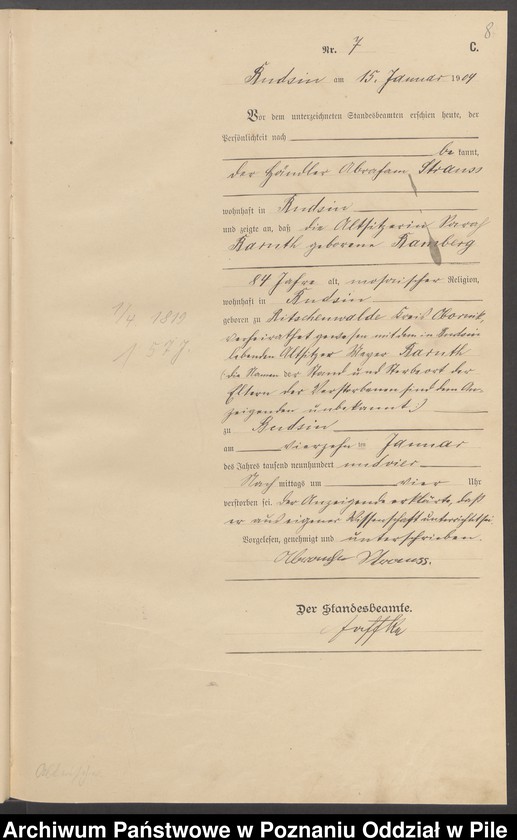 8.
Nr. 7 C.
Budsin am 15. Januar 1904
Vor dem unterzeichneten Standesbeamten erschien heute, der
Persönlichkeit nach
be kannt,
der Händler Abraham Strauss
wohnhaft in Budsin
und zeigte an, daß die Altsitzerin Sarah
Karuth geborene Ramberg
84 Jahre alt, mosaischer Religion,
wohnhaft in Budsin
geboren zu Ritschenwalde Kreis Obornik,
verheirathet gewesen mit dem in Budsin
lebenden Altsitzer Meyer Karuth
(die Namen der Stand und Sterbeort der
Eltern der Verstorbenen sind dem An-
zeigenden unbekannt.)
zu Budsin
am vierzehn ten Januar
des Jahres tausend neunhundert und vier
Nach mittags um vier Uhr
verstorben sei. Der Anzeigende erklärte, daß
er aus eigener Wissenschaft unterrichtet sei.
Vorgelesen, genehmigt und unterschrieben.
Abraham Strauss.
Der Standesbeamte.
1/4 1819
1 577.
Archiwum Państwowe w Poznaniu Oddział w Pile